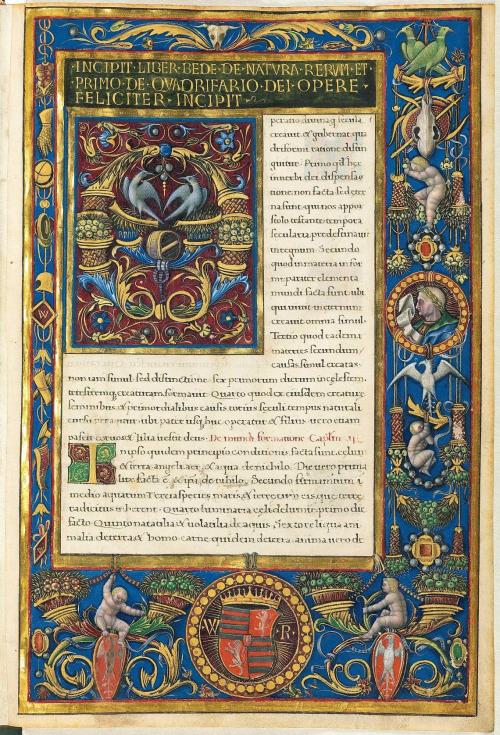 INCIPIT · LIBER · BEDE · DE · NATVRA · RERVM · ET ·
PRIMO · DE · QVADRIFARIO · DEI · OPERE ·
FELICITER · INCIPIT ·
peratio diuina q̃ secula
creauit & gubernat qua
driformi ratione distin
guitur. Primo qd hec
in uerbi dei dispensa
tione non facta sed eter
na sunt. qui nos apo
stolo testante tempora
secularia predestinauit
in regnum. Secundo
quod in materia infor
mi pariter elementa
mundi facta sunt. ubi
qui uiuit in eternum
creauit omnia simul.
Tertio quod eadem
materies secundum
causas simul creatas.
non iam simul. sed distinctione. sex primorum dierum in celestem.
terrestremq; creaturam formauit. Quarto quod ex eiusdem creature
seminibus & primordialibus causis totius seculi tempus naturali
cursu peragitur. ubi pater usq; huc operatur & filius.
pascit coruos & lilia uestit deus. De mundi formatione. Caplm. II.
In ipso quidem principio conditionis. facta sunt. celum
& terra. angeli. aer. & aqua de nichilo. Die uero prima
lux facta ẽ. & ipa de nihilo. Secundo firmamentum i
medio aquarum. Tercia species maris. & terre cum eis que terre
radicitus Quarto luminaria celi de lumine primo die
facto. Quinto natatilia & uolatilia de aquis. Sexto reliqua ani
malia de terra. & homo carne quidem de terra. anima uero de
W R